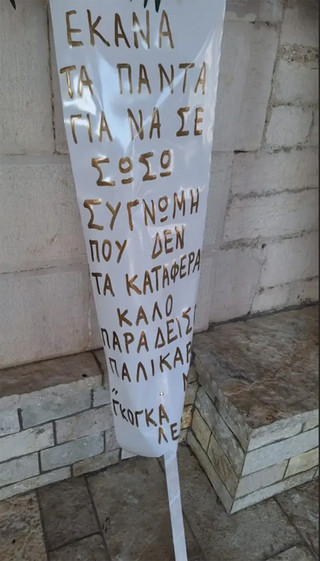 ΕΚΑΝΑ
ΤΑ ΠΑΝΤΑ
ΓΙΑ ΝΑ ΣΕ
ΣΩΣΩ
ΣΥΓΝΩΜΗ
ΠΟΥ ΔΕΝ
ΤΑ ΚΑΤΑΦΕΡΑ
ΚΑΛΟ
ΠΑΡΑΔΕΙΣ
ΠΑΛΙΚΑΡ
Μ
"ΓΚΟΓΚΑ
ΛΕ